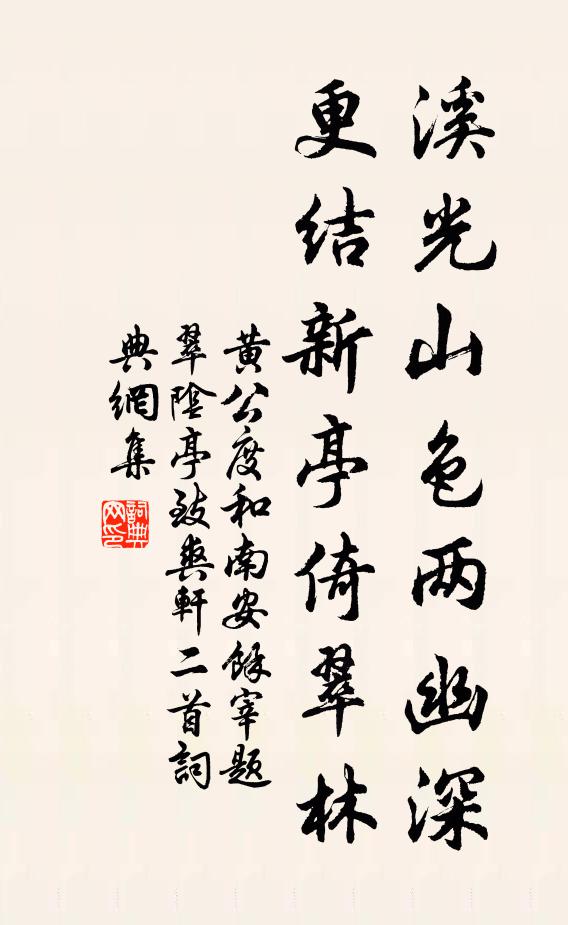 溪光山色两幽深
更结新亭倚翠林
黄公度和南安馀宰题
翠陰亭致爽軒二首詞
典網集
詞典网印